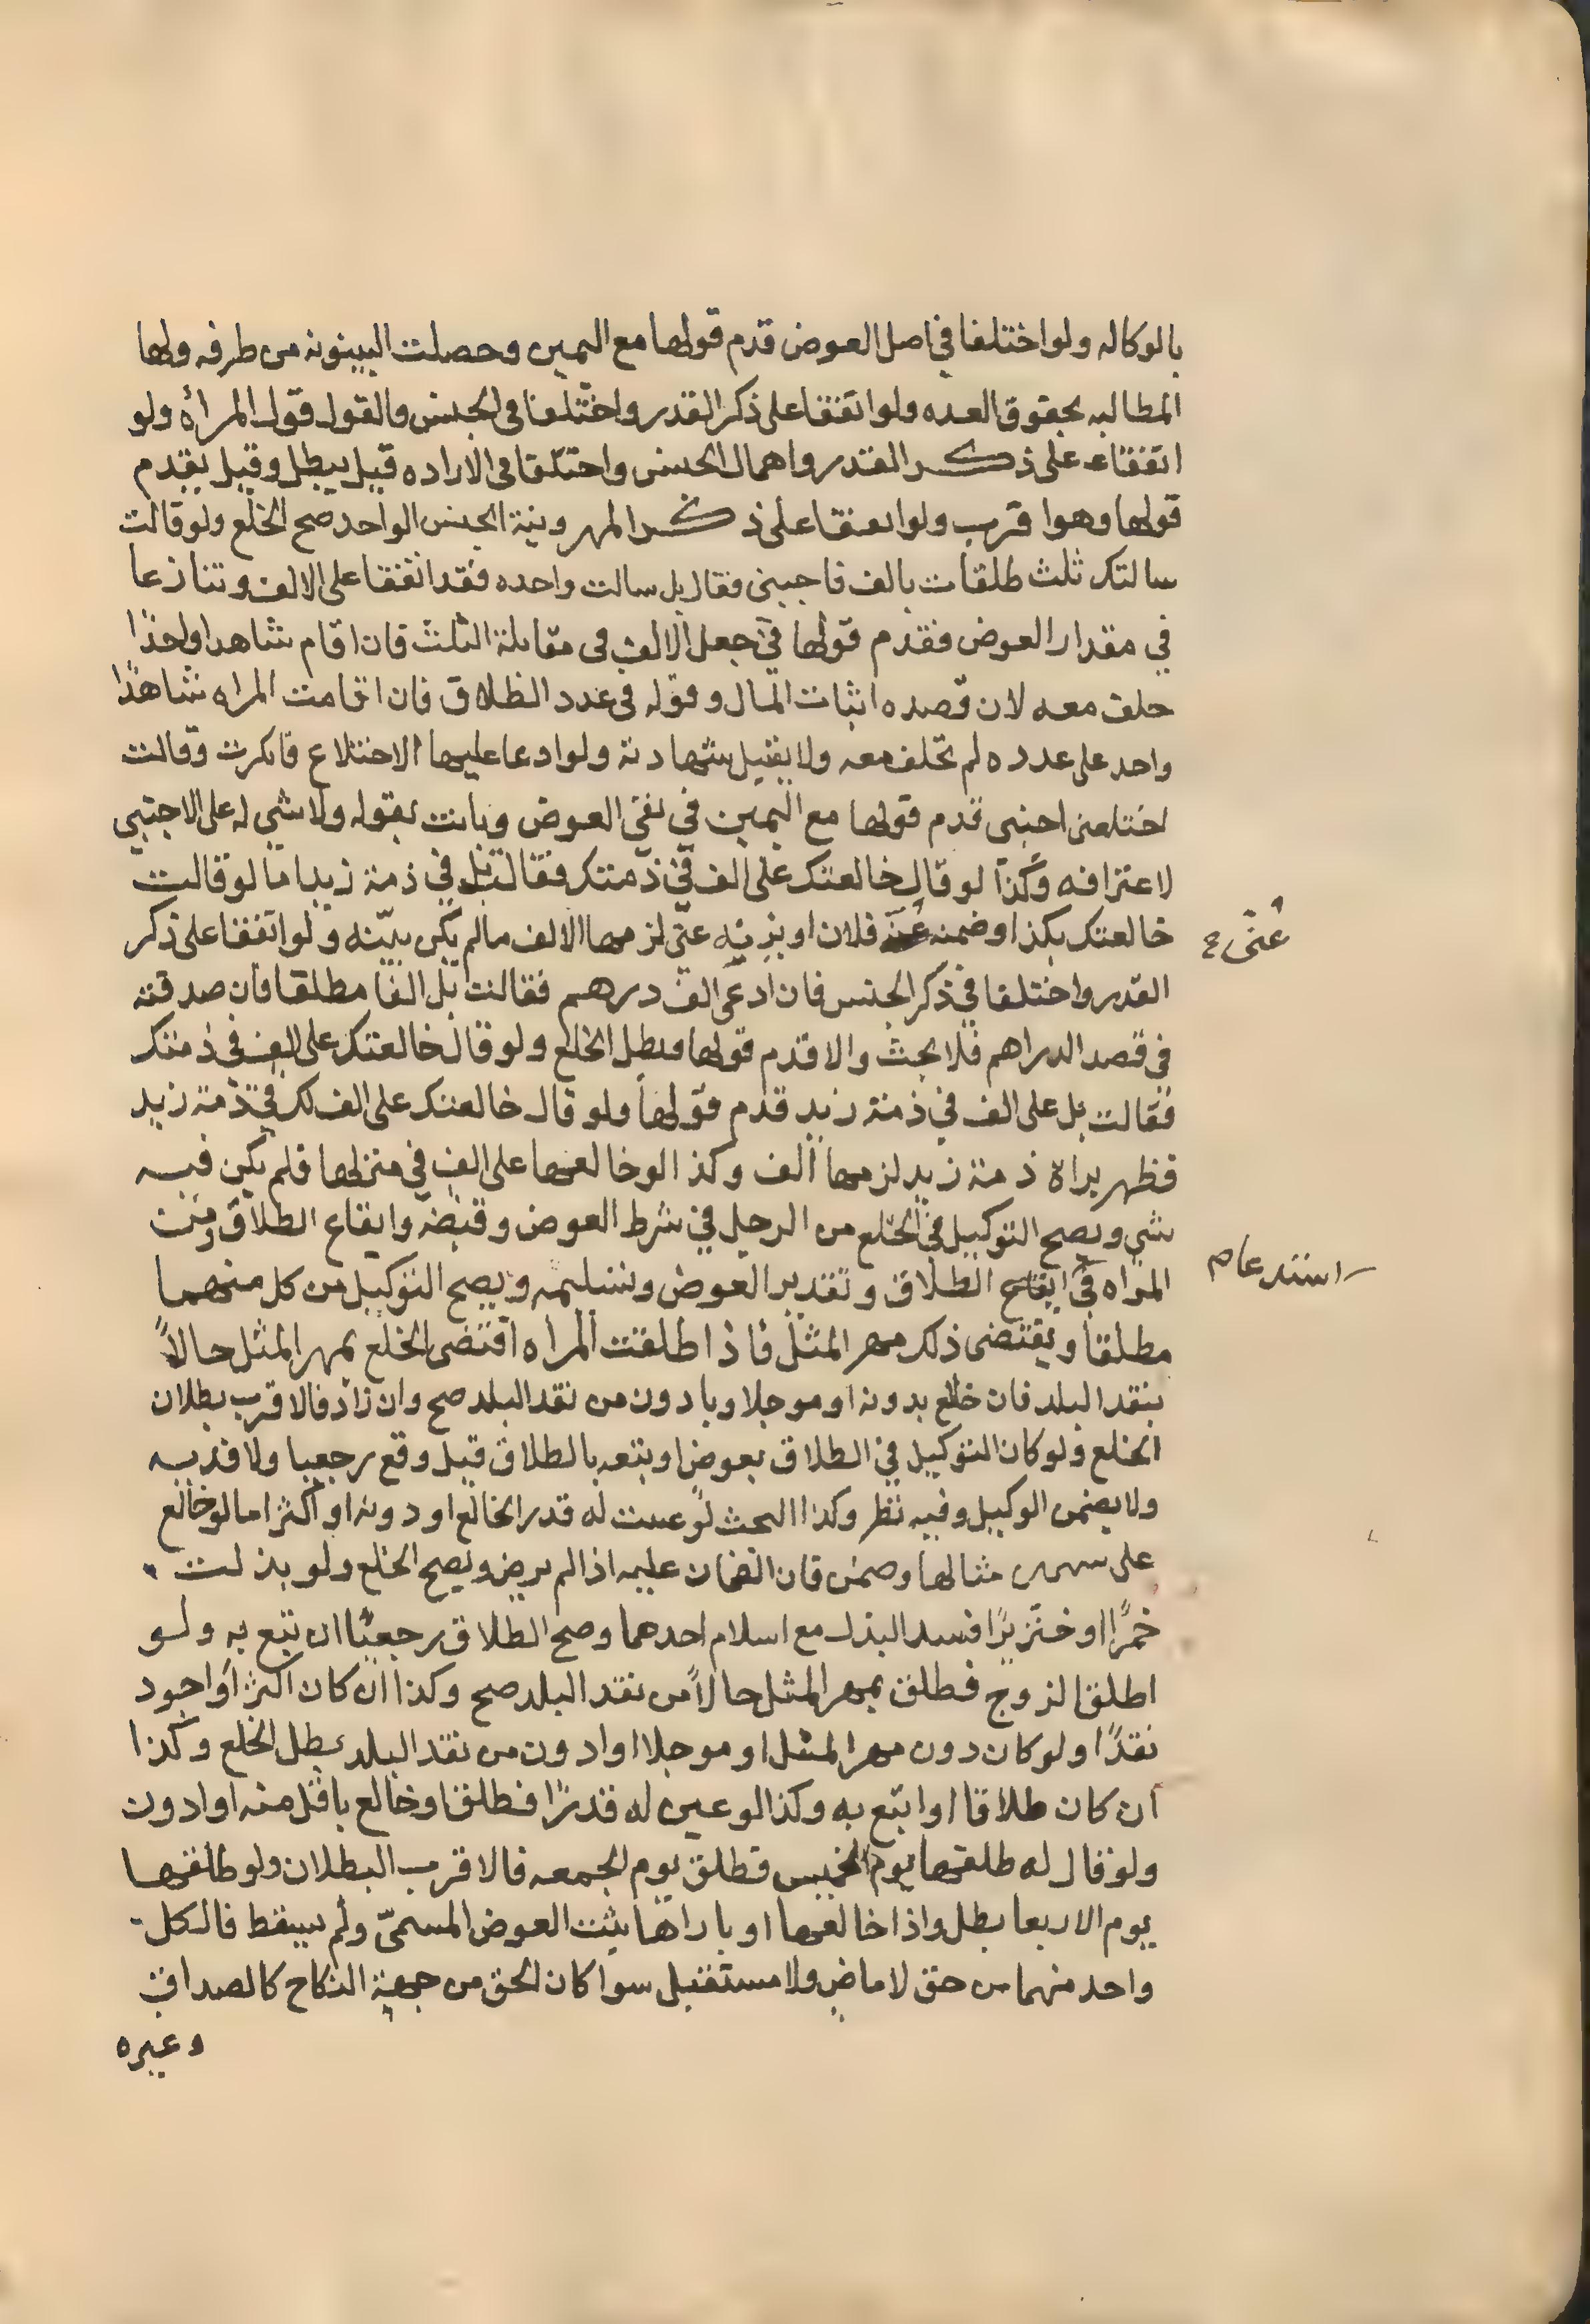 بالوكاله ولو اختلفا في اصل العوض قدم قولها مع اليمين وحصلت البينونه من طرفه ولها
المطالبه بحقوق العده ولو اتفقا على ذكر القدر واختلفا في الجنس فالقول قول المرأه ولو
اتفقا على ذكر القدر واهمال الجنس واختلفا في الاراده قيل يبطل وقيل يقدم
قولها وهوا قرب ولو اتفقا على ذكر المهر ونية الجنس الواحد صح الخلع ولو قالت
سالتك ثلث طلقات بالف فاجبتني فقال بل سالت واحده فقد اتفقا على الالف وتنازعا
في مقدار العوض فقدم قولها في جعل الالف في مقابلة الثلث فان اقام شاهدا واحدًا
حلف معه لان قصده اثبات المال وقوله في عدد الطلاق فان اقامت المراه شاهدًا
واحد على عدده لم تحلف معه ولا يقبل شهادته ولو ادعا عليها الاختلاع فانكرت وقالت
اختلعني اجنبي قدم قولها مع اليمين في نفي العوض وبانت بقوله ولا شي له على الاجنبي
لاعترافه وكذا لو قال خالعتك على الف في ذمتك فقالت بل في ذمة زيد اما لو قالت
خالعتك بكذا وضمنه فلان او يزنه عني لزمها الالف ما لم يكن بيّنه ولو اتفقا على ذكر
عنّي
القدر واختلفا في ذكر الجنس فان ادعى الف درهم فقالت بل الفا مطلقا فان صدقته
في قصد الدراهم فلا بحث والا قدم قولها وبطل الخلع ولو قال خالعتك على الف في ذمتك
فقالت بل على الف في ذمة زيد قدم قولها ولو قال خالعتك على الف لك في ذمة زيد
فظهر براة ذمة زيد لزمها الف وكذا لو خالعها على الف في منزلها فلم يكن فيه
شي ويصح التوكيل في الخلع من الرجل في شرط العوض وقبضه وايقاع الطلاق ومن
المراه في ايقاع الطلاق وتقدير العوض وتسليمه ويصح التوكيل من كل منهما
استدعا
مطلقا ويقتضي ذلك مهر المثل فاذا طلقت المراه اقتضى الخلع بمهر المثل حالاً
بنقد البلد فان خلع بدونه او موجلا وبادون من نقد البلد صح وان زاد فالاقرب بطلان
الخلع ولو كان التوكيل في الطلاق بعوض او يتبعه بالطلاق قيل وقع رجعيا ولا فديه
ولا يضمن الوكيل وفيه نظر وكذا البحث لو عينت له قدر الخالع او دونه او اكثر اما لو خالع
على مالها وضمن فان الضمان عليه اذا لم يرض ويصح الخلع ولو بذلت
خمرًا او خنزيرًا فسد البذل مع اسلام احدهما وصح الطلاق رجعيًا ان تبع به ولو
اطلق الزوج فطلق بمهر المثل حالاً من نقد البلد صح وكذا ان كان اكثر او اجود
نقدًا ولو كان دون مهر المثل او موجلا او ادون من نقد البلد بطل الخلع وكذا
ان كان طلاقا او اتبع به وكذا لو عين له قدرًا فطلق او خالع باقل منه او ادون
ولو قال له طلقها يوم الخميس فطلق يوم الجمعه فالاقرب البطلان ولو طلقها
يوم الاربعا بطل واذا خالعها او باراها يثبت العوض المسمّى ولم يسقط فالكل
واحد منهما من حق لا ماض ولا مستقبل سوا كان الحق من جهة النكاح كالصداق
وغيره